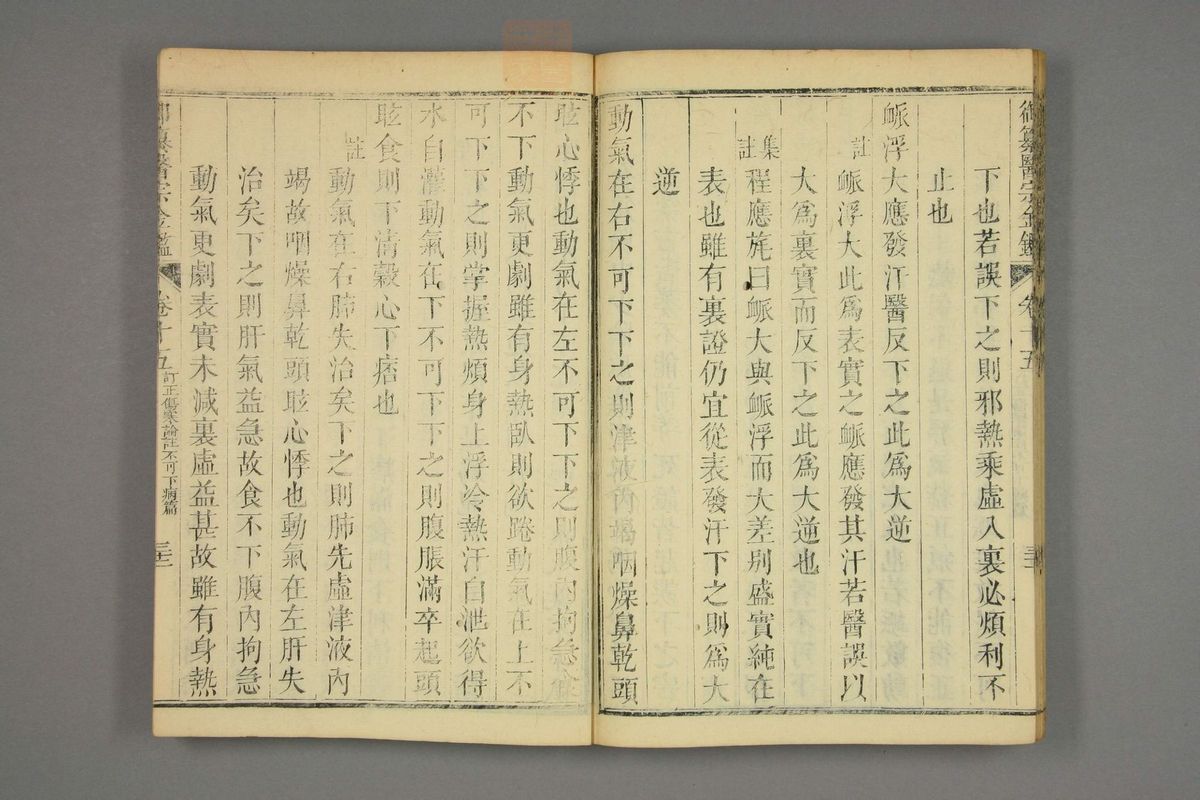 御纂醫宗金鑑 卷十五
下也若誤下之則邪熱乘虛入裏必煩利不
止也
脈浮大應發汗醫反下之此爲大逆
註 脈浮大此爲表實之脈應發其汗若醫誤以
大爲裏實而反下之此爲大逆也
集註 程應旄曰脈大與脈浮而大差別盛實純在
表也雖有裏證仍宜從表發汗下之則爲大
逆
動氣在右不可下下之則津液內竭咽燥鼻乾頭
眩心悸也動氣在左不可下下之則腹內拘急食
不下動氣更劇雖有身熱臥則欲踡動氣在上不
可下下之則掌握熱煩身上浮冷熱汗自泄欲得
水自灌動氣在下不可下下之則腹脹滿卒起頭
眩食則下清穀心下痞也
註 動氣在右肺失治矣下之則肺先虛津液內
竭故咽燥鼻乾頭眩心悸也動氣在左肝失
治矣下之則肝氣益急故食不下腹內拘急
動氣更劇表實未減裏虛益甚故雖有身熱
御纂醫宗金鑑 卷十五 訂正傷寒論註不可下病篇